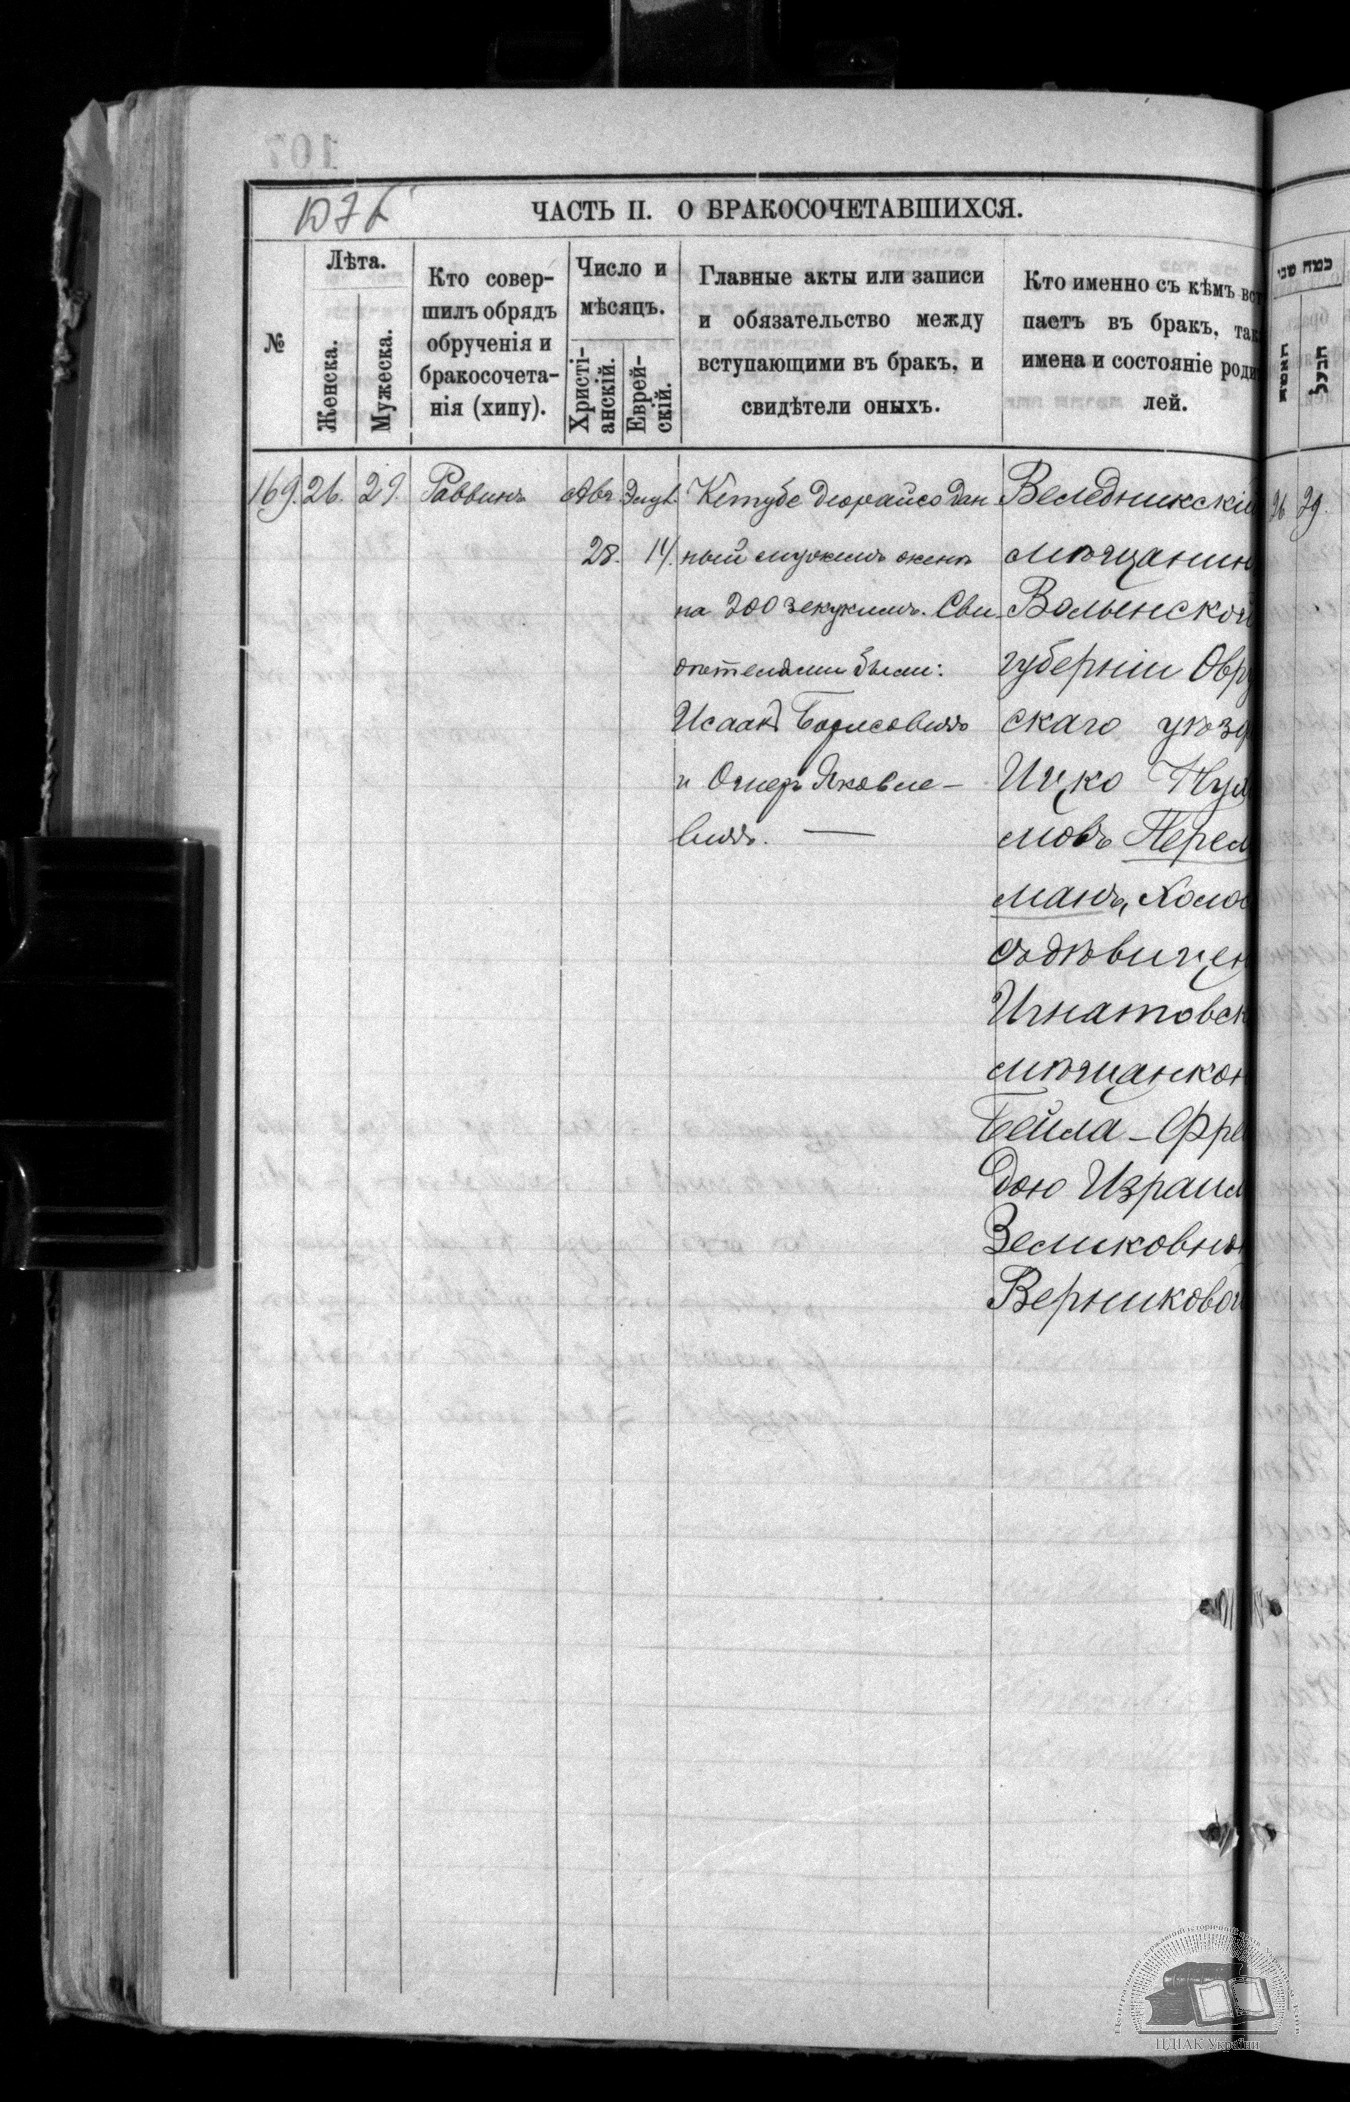 107
ЧАСТЬ II. О БРАКОСОЧЕТАВШИХСЯ.
№
Лѣта.
Женска.
Мужеска.
Кто совер-
шилъ обрядъ
обрученія и
бракосочета-
нія (хипу).
Число и
мѣсяцъ.
Христі-
анскій.
Еврей-
скій.
Главные акты или записи
и обязательство между
вступающими въ бракъ, и
свидѣтели оныхъ.
Кто именно съ кѣмъ вст
паетъ въ бракъ, так
имена и состояніе роди
лей.
169. 26. 29. Раввинъ Авг. Элул.
28. 14.
Кетубе деорайсо дан
ный мужемъ женѣ
на 200 зекукимъ. Сви
дѣтелями были:
Исаакъ Борисовичъ
и Ошеръ Яковле-
вичъ. —
Веледникскій
мѣщанин
Волынской
губерніи Овру
скаго уѣзд
Ицко
мовъ Перел
манъ, холос
съ дѣвицею
Игнатовск
мѣщанкою
Бейла-Фре
дою Израил
Зеликовною
Верниковой
כמה שני
האשה
הבעל
26 29.
ЦДІАК України